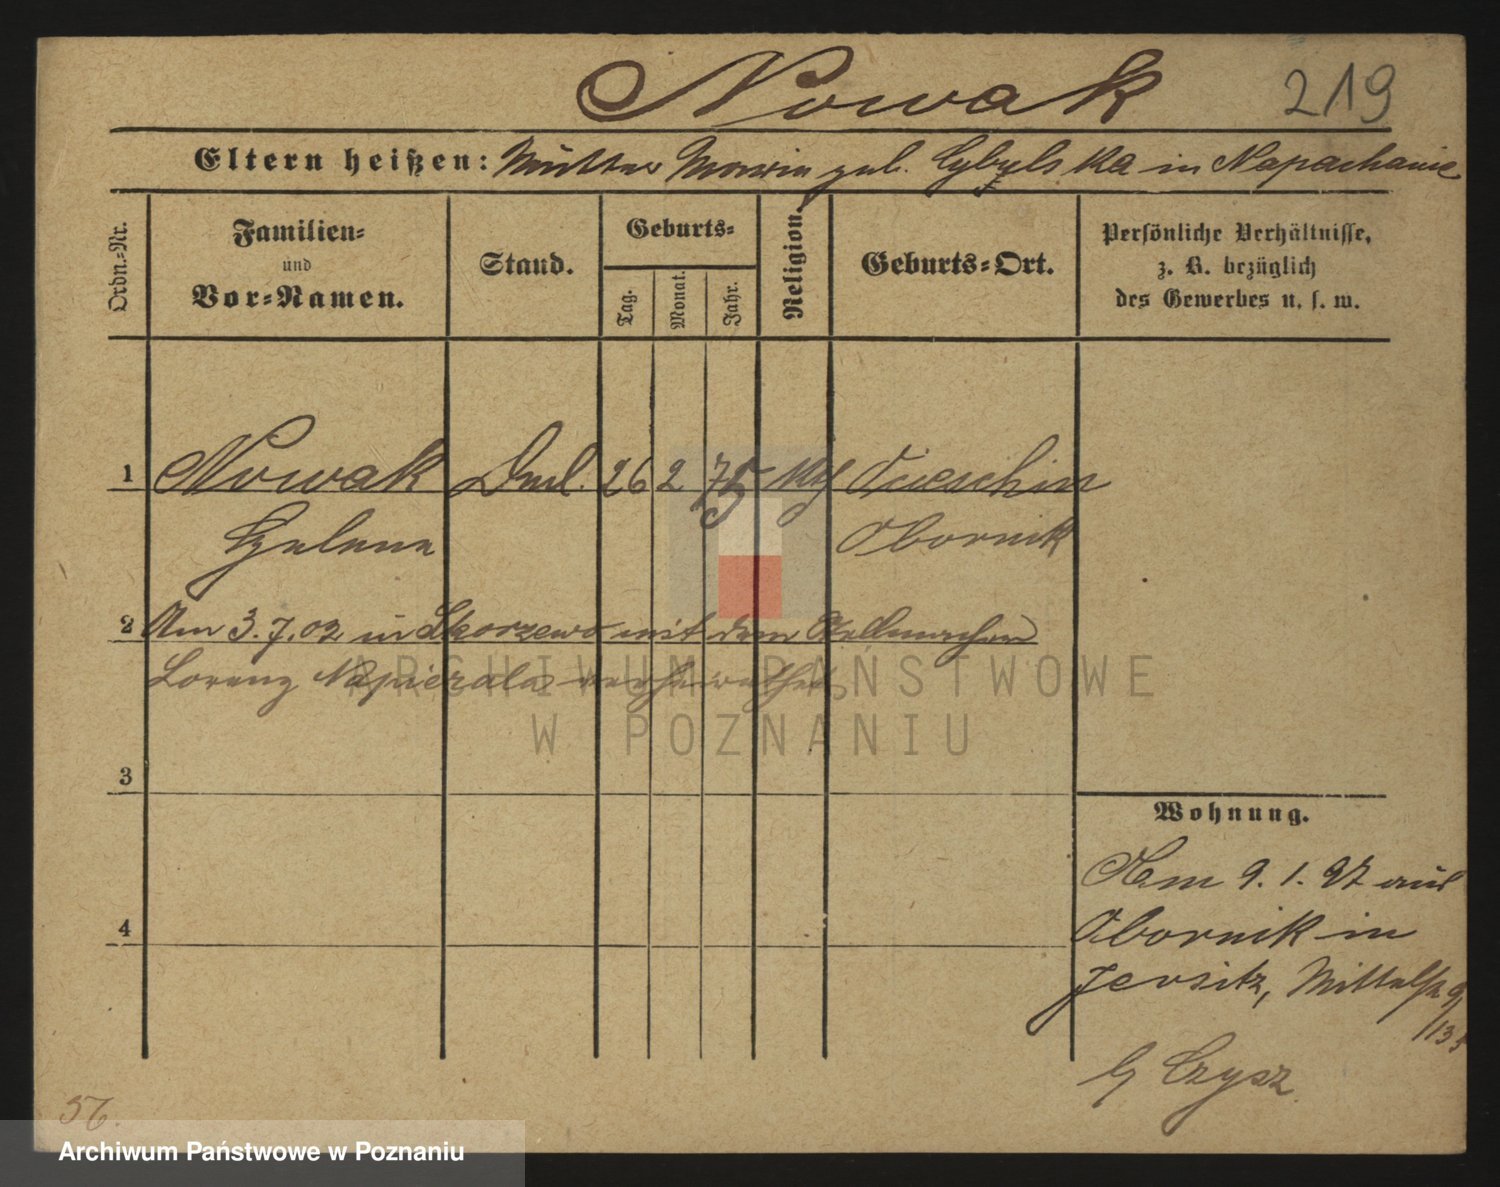 Nowak 219
Eltern heißen: Mutter Marie geb. Cybylska in Napachanie
Ordn.-Nr.
Familien-
und
Vor-Namen.
Stand.
Geburts-
Tag.
Monat.
Jahr.
Religion.
Geburts-Ort.
Persönliche Verhältnisse,
z. B. bezüglich
des Gewerbes u. s. w.
1 Nowak 26 2 75 kth
Helene Obornik
2 Am 3.7.02 in Skorzewo mit dem Stellmacher
Lorenz Napierala verheirathet
3
4
Wohnung.
Am 9.1.97 aus
Obornik in
Jersitz, Mittelstr 9
b/ Czysz
56.
ARCHIWUM PAŃSTWOWE
W POZNANIU
Archiwum Państwowe w Poznaniu